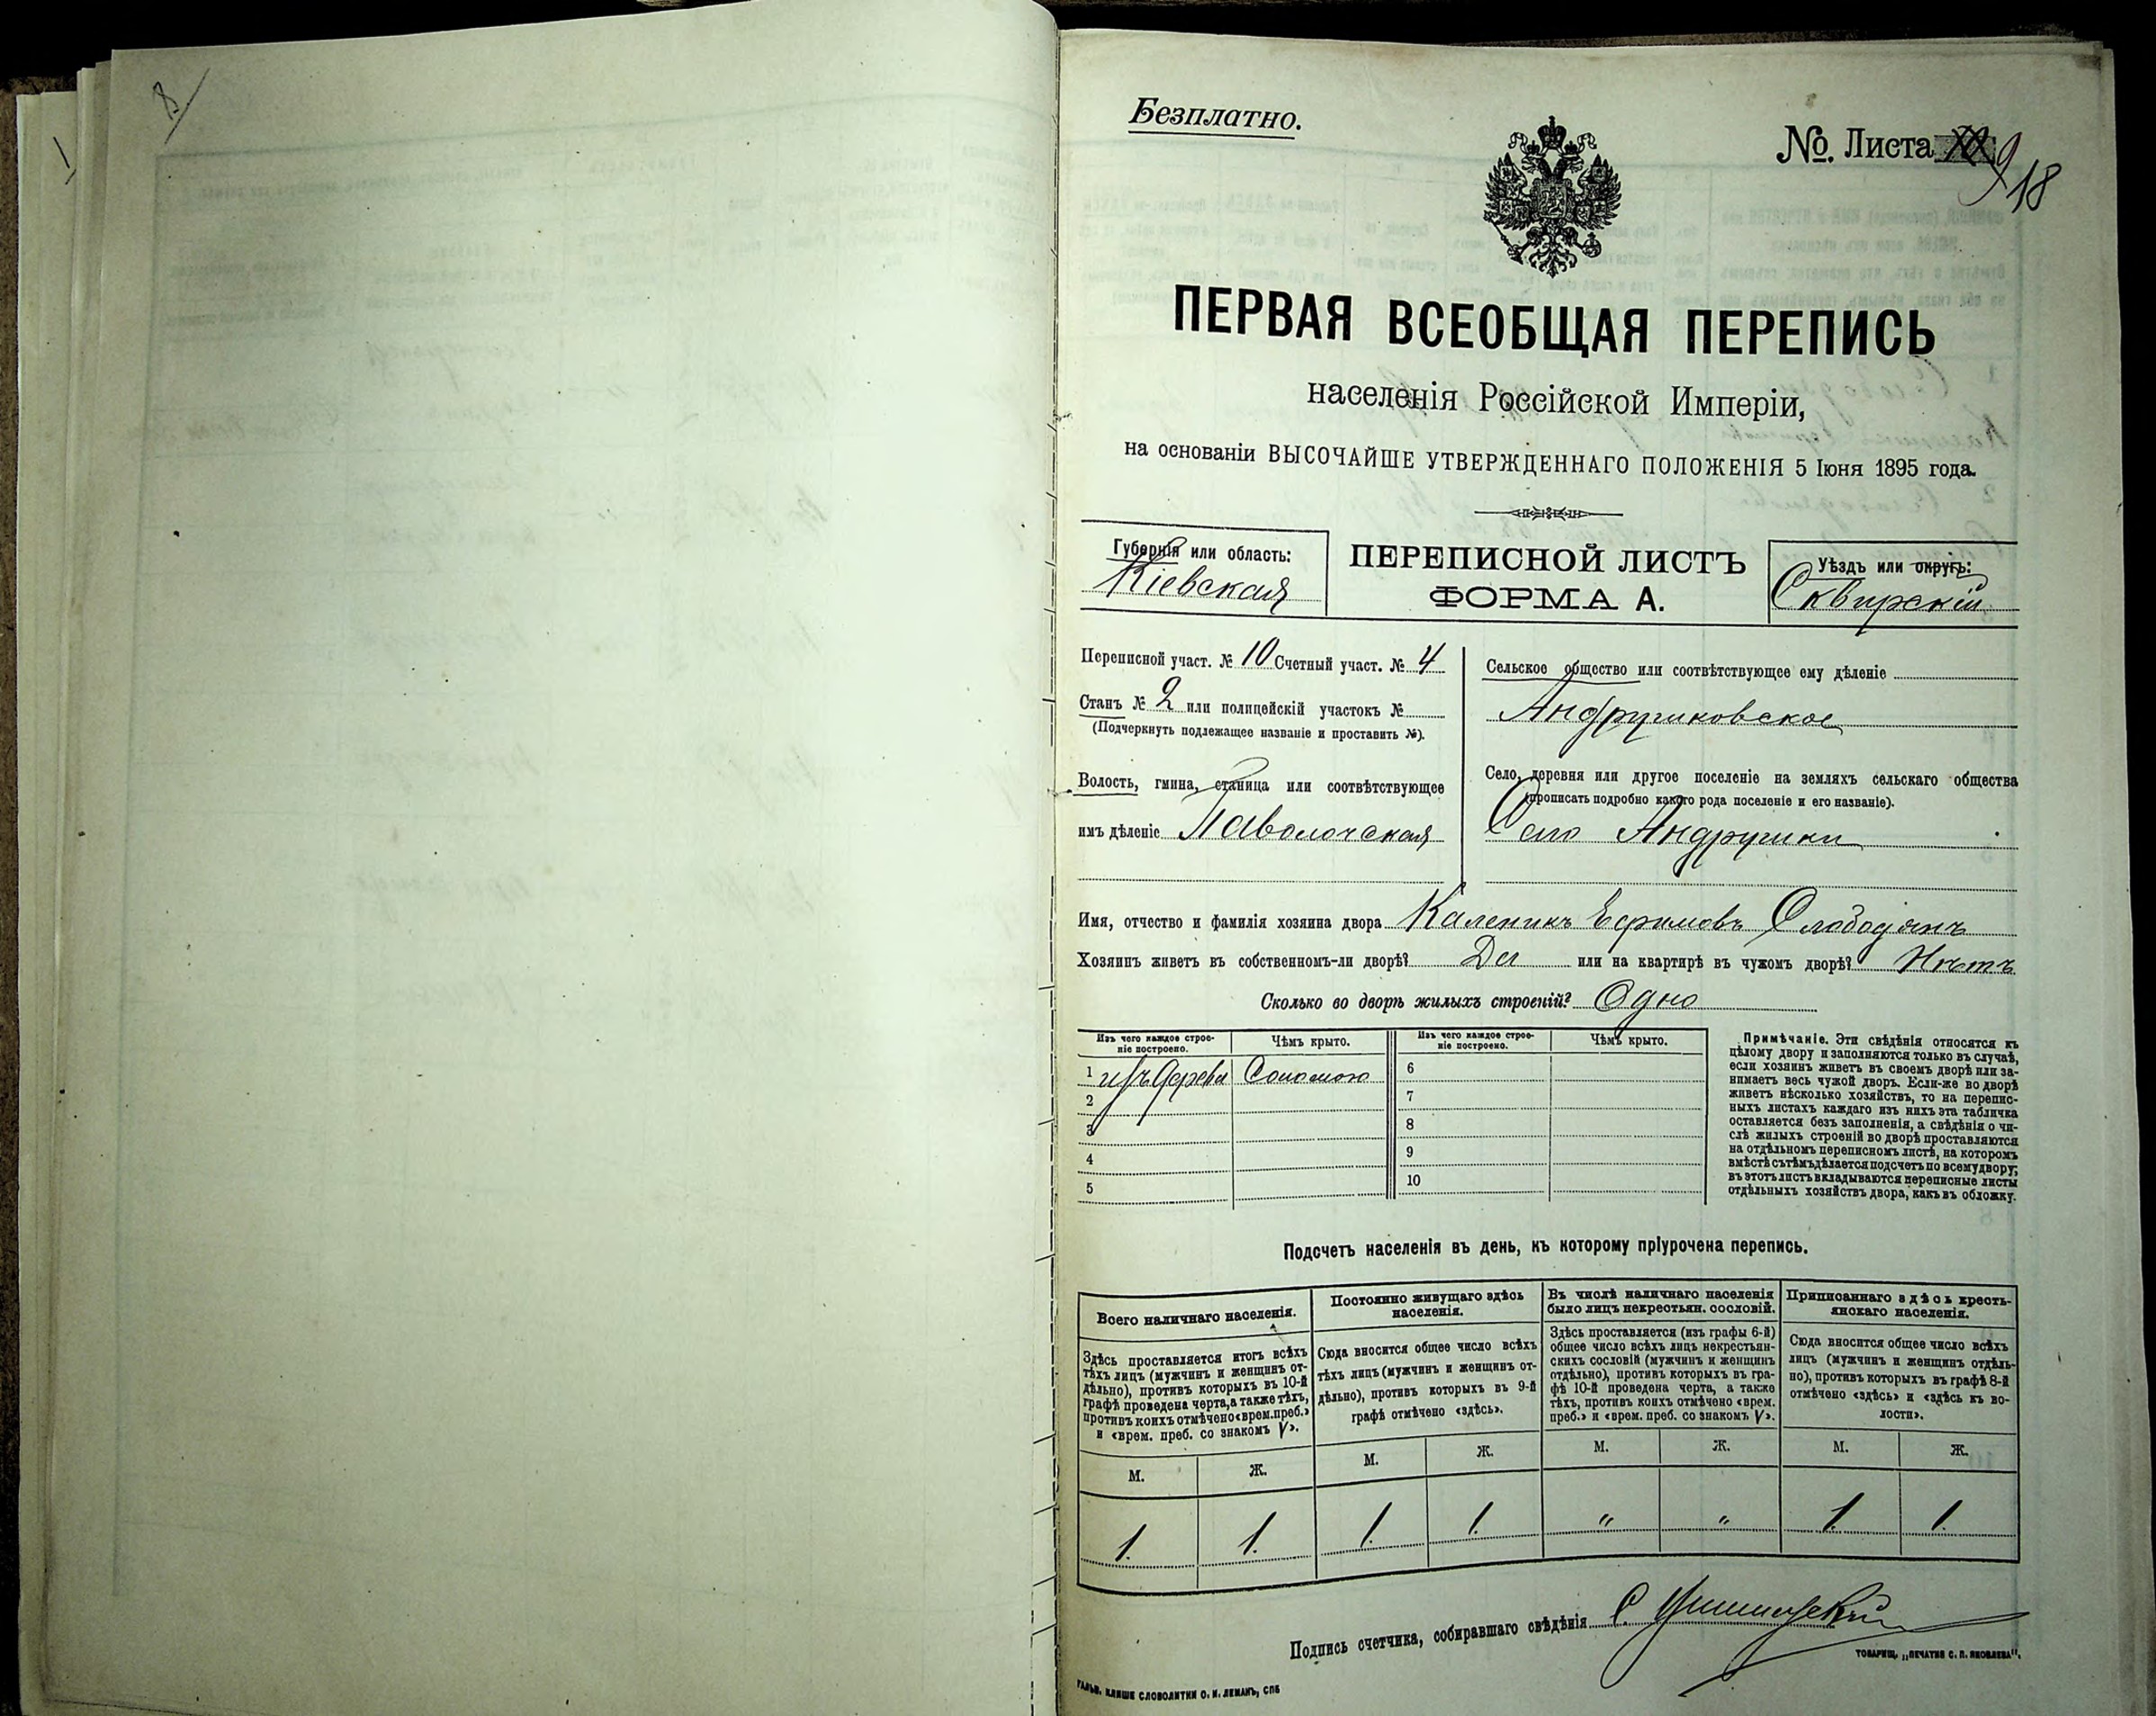 8
Безплатно.
№. Листа 9
18
ПЕРВАЯ ВСЕОБЩАЯ ПЕРЕПИСЬ
населенія Россійской Имперіи,
на основаніи ВЫСОЧАЙШЕ УТВЕРЖДЕННАГО ПОЛОЖЕНІЯ 5 Іюня 1895 года.
Губернія или область:
Кіевская
ПЕРЕПИСНОЙ ЛИСТЪ
ФОРМА А.
Уѣздъ или округъ:
Сквирскій
Переписной участ. № 10 Счетный участ. № 4
Станъ № 2 или полицейскій участокъ №
(Подчеркнуть подлежащее названіе и проставить №).
Волость, гмина, станица или соотвѣтствующее
имъ дѣленіе Паволочская
Сельское общество или соотвѣтствующее ему дѣленіе
Андрушковское
Село, деревня или другое поселеніе на земляхъ сельскаго общества
(прописать подробно какого рода поселеніе и его названіе).
Село Андрушки
Имя, отчество и фамилія хозяина двора Каленикъ Ефимовъ Слободянъ
Хозяинъ живетъ въ собственномъ-ли дворѣ? Да или на квартирѣ въ чужомъ дворѣ? Нѣтъ
Сколько во дворѣ жилыхъ строеній? Одно
Изъ чего каждое строе-
ніе построено.
Чѣмъ крыто.
Изъ чего каждое строе-
ніе построено.
Чѣмъ крыто.
1 изъ дерева Соломою 6
2 7
3 8
4 9
5 10
Примѣчаніе. Эти свѣдѣнія относятся къ
цѣлому двору и заполняются только въ случаѣ,
если хозяинъ живетъ въ своемъ дворѣ или за-
нимаетъ весь чужой дворъ. Если-же во дворѣ
живетъ нѣсколько хозяйствъ, то на перепис-
ныхъ листахъ каждаго изъ нихъ эта табличка
оставляется безъ заполненія, а свѣдѣнія о чи-
слѣ жилыхъ строеній во дворѣ проставляются
на отдѣльномъ переписномъ листѣ, на которомъ
вмѣстѣ съ тѣмъ дѣлается подсчетъ по всему двору;
въ этотъ листъ вкладываются переписные листы
отдѣльныхъ хозяйствъ двора, какъ въ обложку.
Подсчетъ населенія въ день, къ которому пріурочена перепись.
Всего наличнаго населенія.
Здѣсь проставляется итогъ всѣхъ
тѣхъ лицъ (мужчинъ и женщинъ от-
дѣльно), противъ которыхъ въ 10-й
графѣ проведена черта, а также тѣхъ,
противъ коихъ отмѣчено «врем. преб.»
и «врем. преб. со знакомъ V».
Постоянно живущаго здѣсь
населенія.
Сюда вносится общее число всѣхъ
тѣхъ лицъ (мужчинъ и женщинъ от-
дѣльно), противъ которыхъ въ 9-й
графѣ отмѣчено «здѣсь».
Въ числѣ наличнаго населенія
было лицъ некрестьян. сословій.
Здѣсь проставляется (изъ графы 6-й)
общее число всѣхъ лицъ некрестьян-
скихъ сословій (мужчинъ и женщинъ
отдѣльно), противъ которыхъ въ гра-
фѣ 10-й проведена черта, а также
тѣхъ, противъ коихъ отмѣчено «врем.
преб.» и «врем. преб. со знакомъ V».
Приписаннаго здѣсь кресть-
янскаго населенія.
Сюда вносится общее число всѣхъ
лицъ (мужчинъ и женщинъ отдѣль-
но), противъ которыхъ въ графѣ 8-й
отмѣчено «здѣсь» и «здѣсь къ во-
лости».
М. Ж. М. Ж. М. Ж. М. Ж.
1. 1. 1. 1. " " 1. 1.
Подпись счетчика, собиравшаго свѣдѣнія С.
ТОВАРИЩ. „ПЕЧАТНЯ С. П. ЯКОВЛЕВА".
ГАЛЬВ. КЛИШЕ СЛОВОЛИТНИ О. И. ЛЕМАНЪ, СПБ